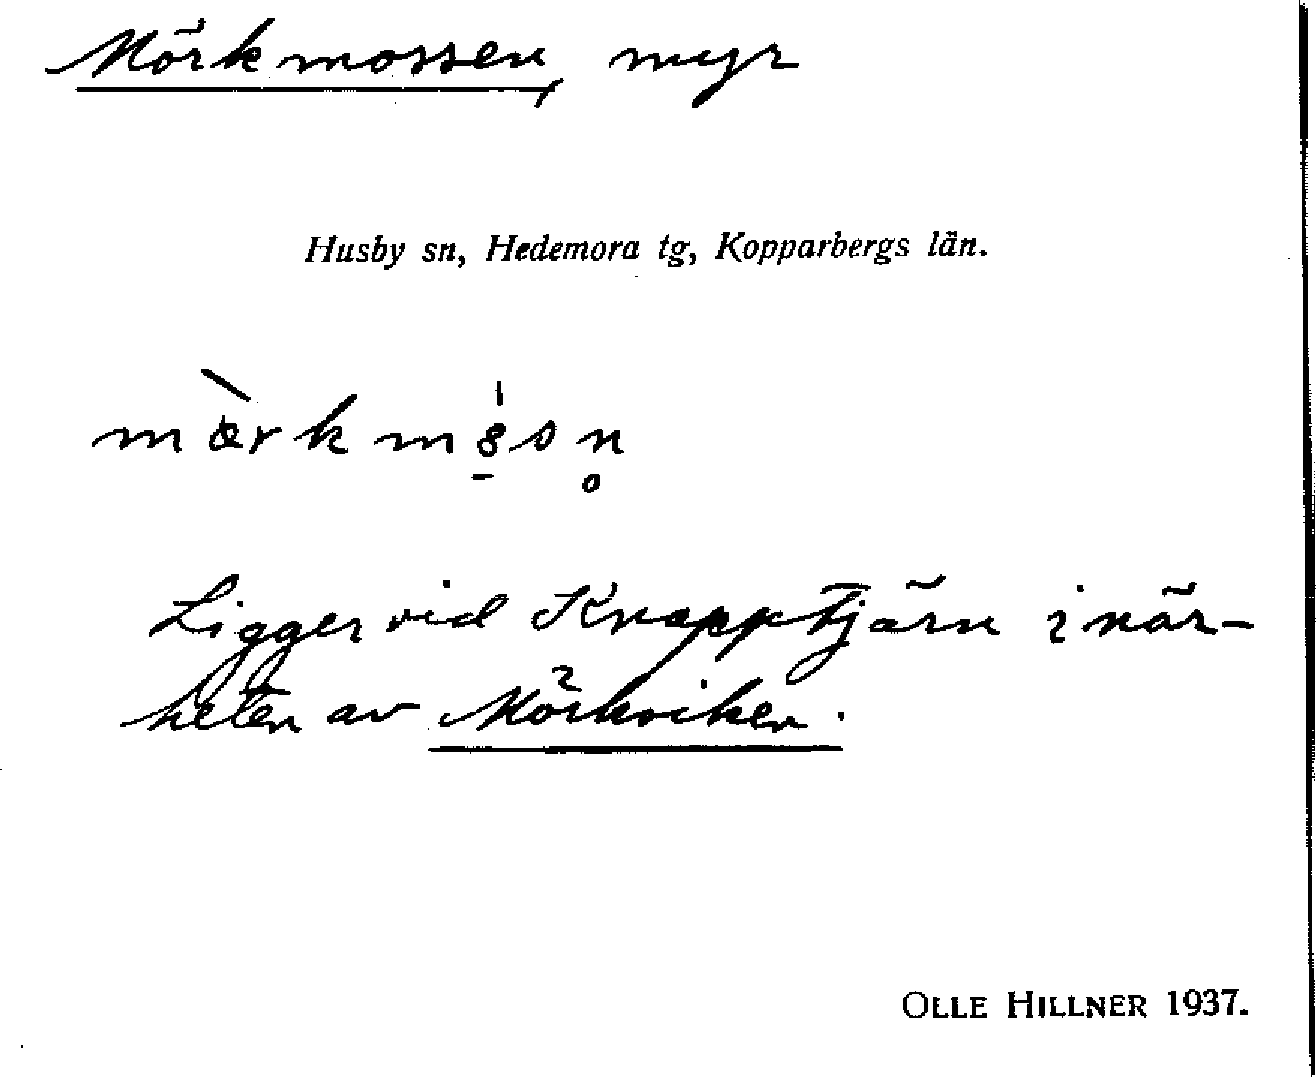 Mörkmossen, myr
Husby sn, Hedemora tg, Kopparbergs län.
Ligger vid Knapptjärn i när-
heten av Mörkviken.
OLLE HILLNER 1937.